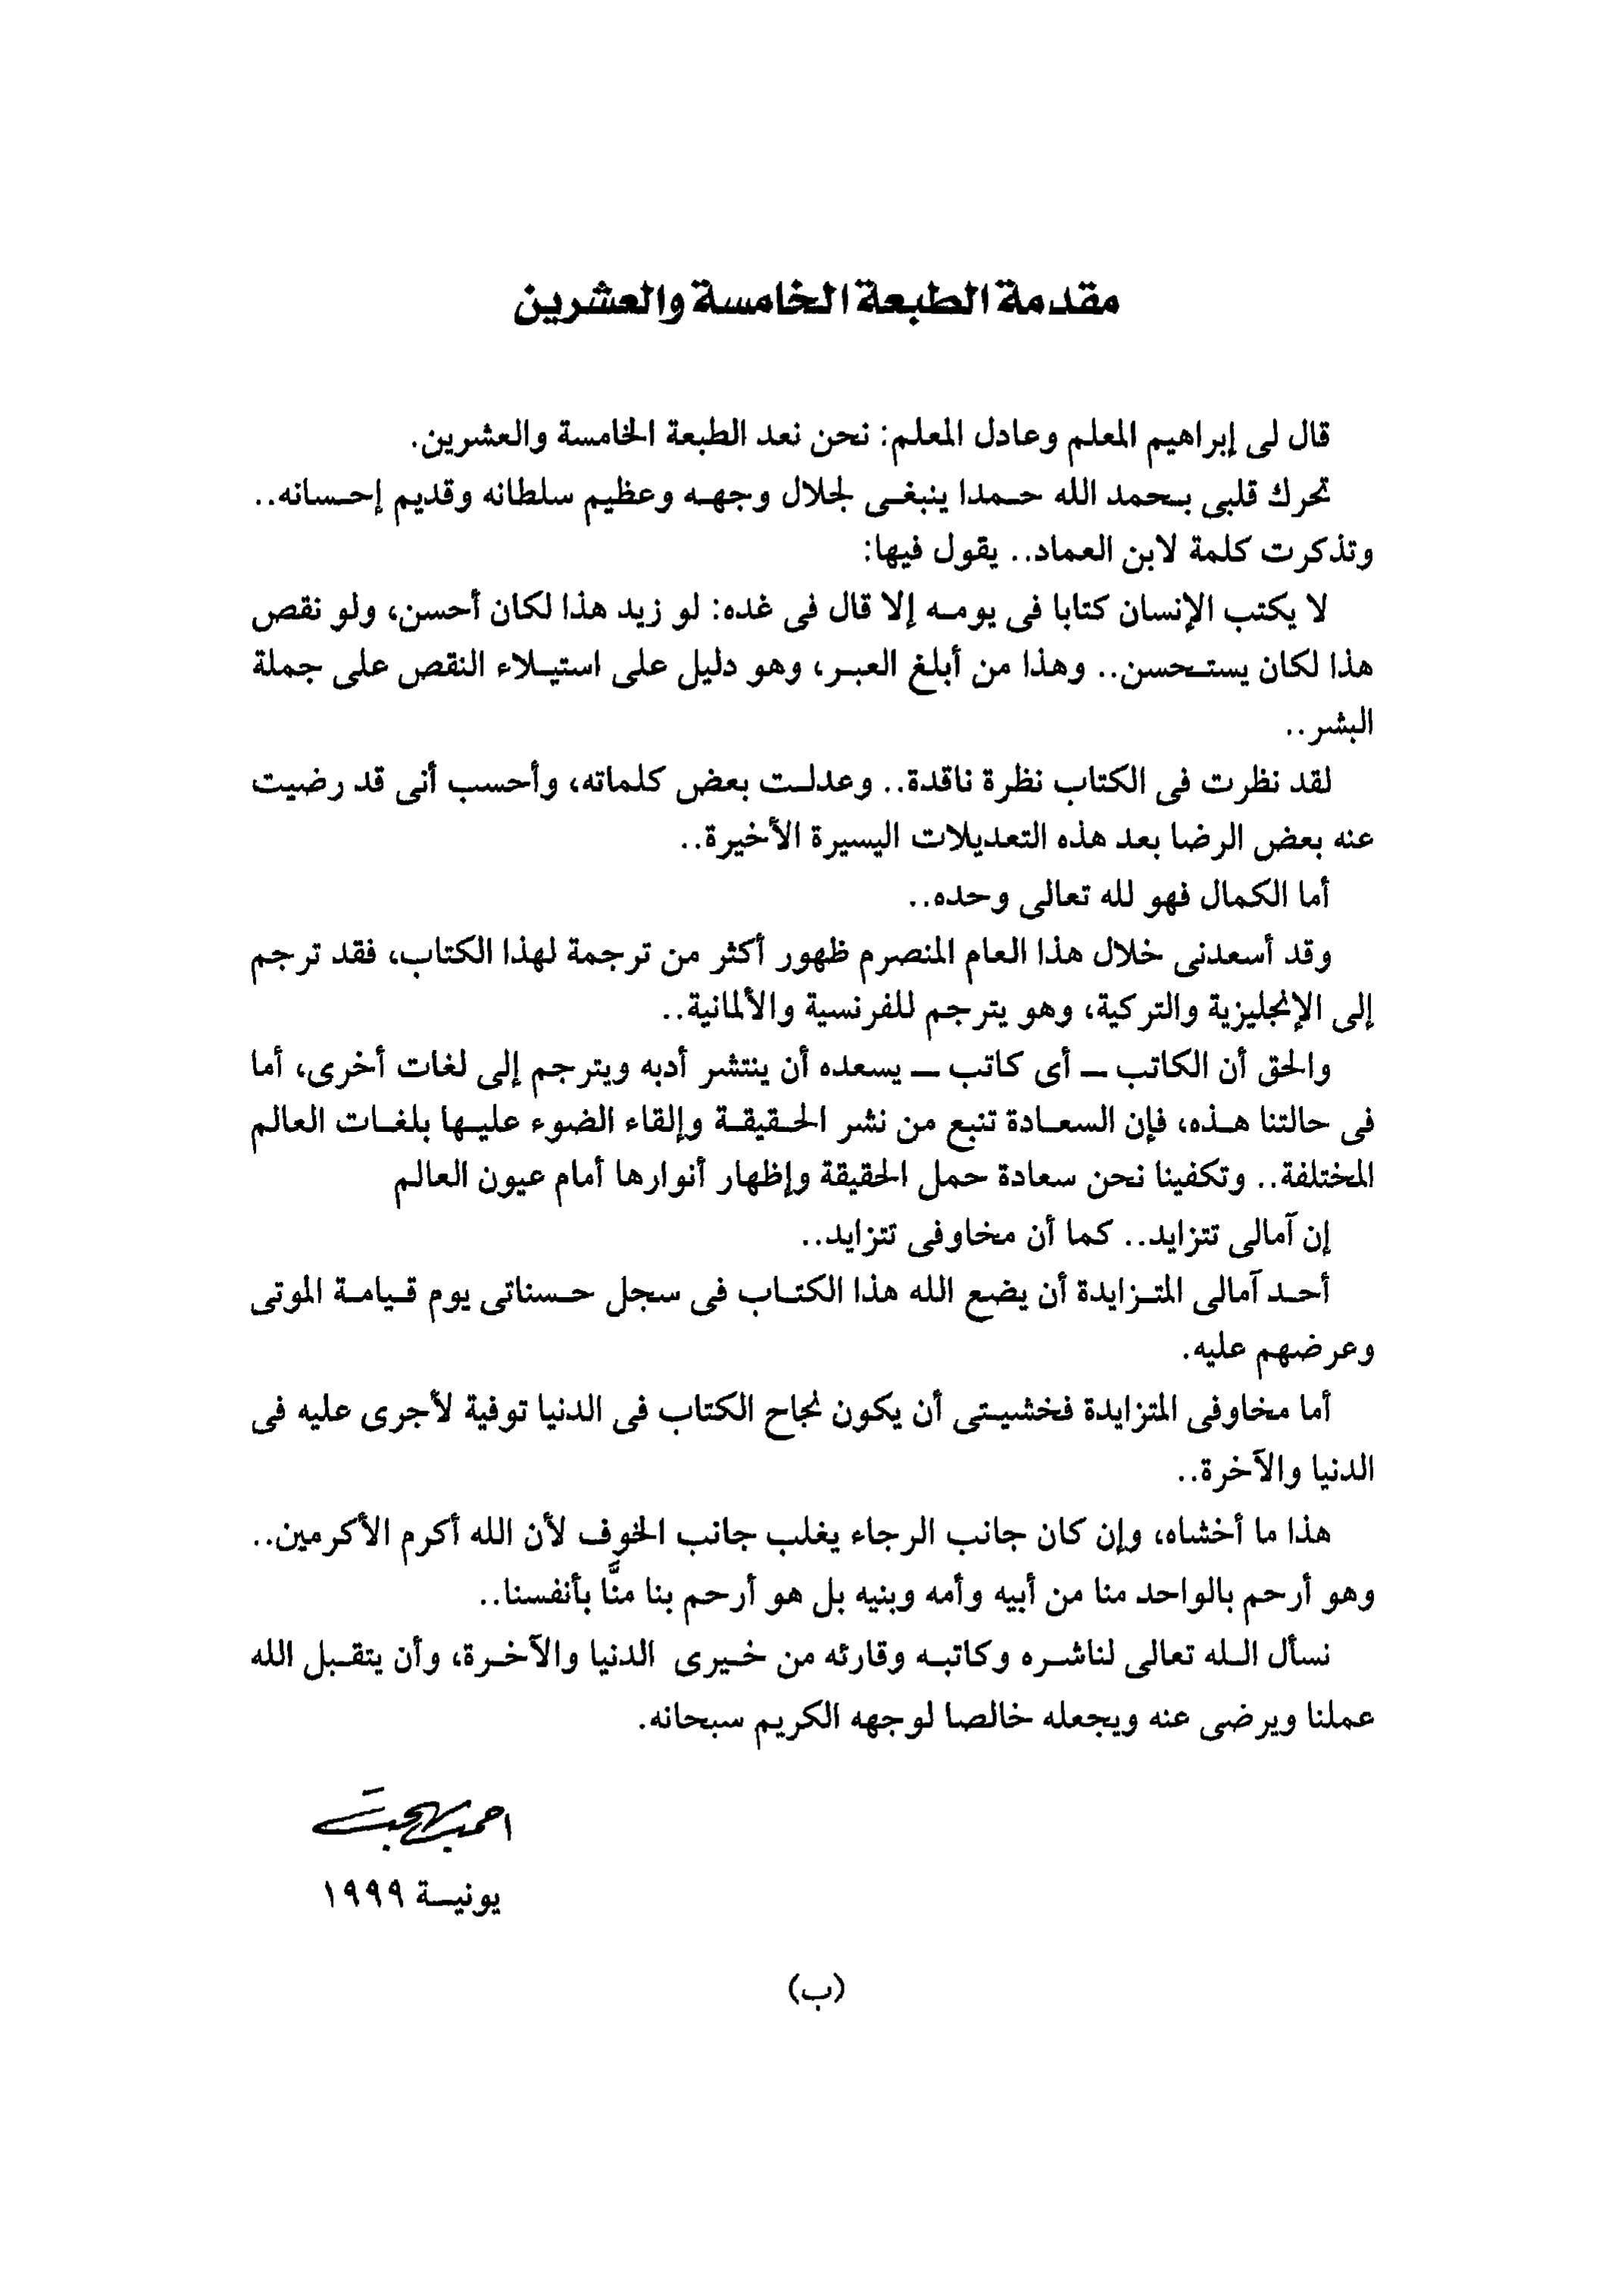 مقدمة الطبعة الخامسة والعشرين
قال لى إبراهيم المعلم وعادل المعلم: نحن نعد الطبعة الخامسة والعشرين.
تحرك قلبى بحمد الله حمدا ينبغى لجلال وجهه وعظيم سلطانه وقديم إحسانه..
وتذكرت كلمة لابن العماد.. يقول فيها:
لا يكتب الإنسان كتابا فى يومه إلا قال فى غده: لو زيد هذا لكان أحسن، ولو نقص
هذا لكان يستحسن.. وهذا من أبلغ العبر، وهو دليل على استيلاء النقص على جملة
البشر..
لقد نظرت فى الكتاب نظرة ناقدة.. وعدلت بعض كلماته، وأحسب أنى قد رضيت
عنه بعض الرضا بعد هذه التعديلات اليسيرة الأخيرة..
أما الكمال فهو لله تعالى وحده..
وقد أسعدنى خلال هذا العام المنصرم ظهور أكثر من ترجمة لهذا الكتاب، فقد ترجم
إلى الإنجليزية والتركية، وهو يترجم للفرنسية والألمانية..
والحق أن الكاتب ـ أى كاتب ـ يسعده أن ينتشر أدبه ويترجم إلى لغات أخرى، أما
فى حالتنا هذه، فإن السعادة تنبع من نشر الحقيقة وإلقاء الضوء عليها بلغات العالم
المختلفة.. وتكفينا نحن سعادة حمل الحقيقة وإظهار أنوارها أمام عيون العالم
إن آمالى تتزايد.. كما أن مخاوفى تتزايد..
أحد آمالى المتزايدة أن يضع الله هذا الكتاب فى سجل حسناتى يوم قيامة الموتى
وعرضهم عليه.
أما مخاوفى المتزايدة فخشيتى أن يكون نجاح الكتاب فى الدنيا توفية لأجرى عليه فى
الدنيا والآخرة..
هذا ما أخشاه، وإن كان جانب الرجاء يغلب جانب الخوف لأن الله أكرم الأكرمين..
وهو أرحم بالواحد منا من أبيه وأمه وبنيه بل هو أرحم بنا منَّا بأنفسنا..
نسأل الله تعالى لناشره وكاتبه وقارئه من خيرى الدنيا والآخرة، وأن يتقبل الله
عملنا ويرضى عنه ويجعله خالصا لوجهه الكريم سبحانه.
احمد بهجت
يونية ١٩٩٩
(ب)